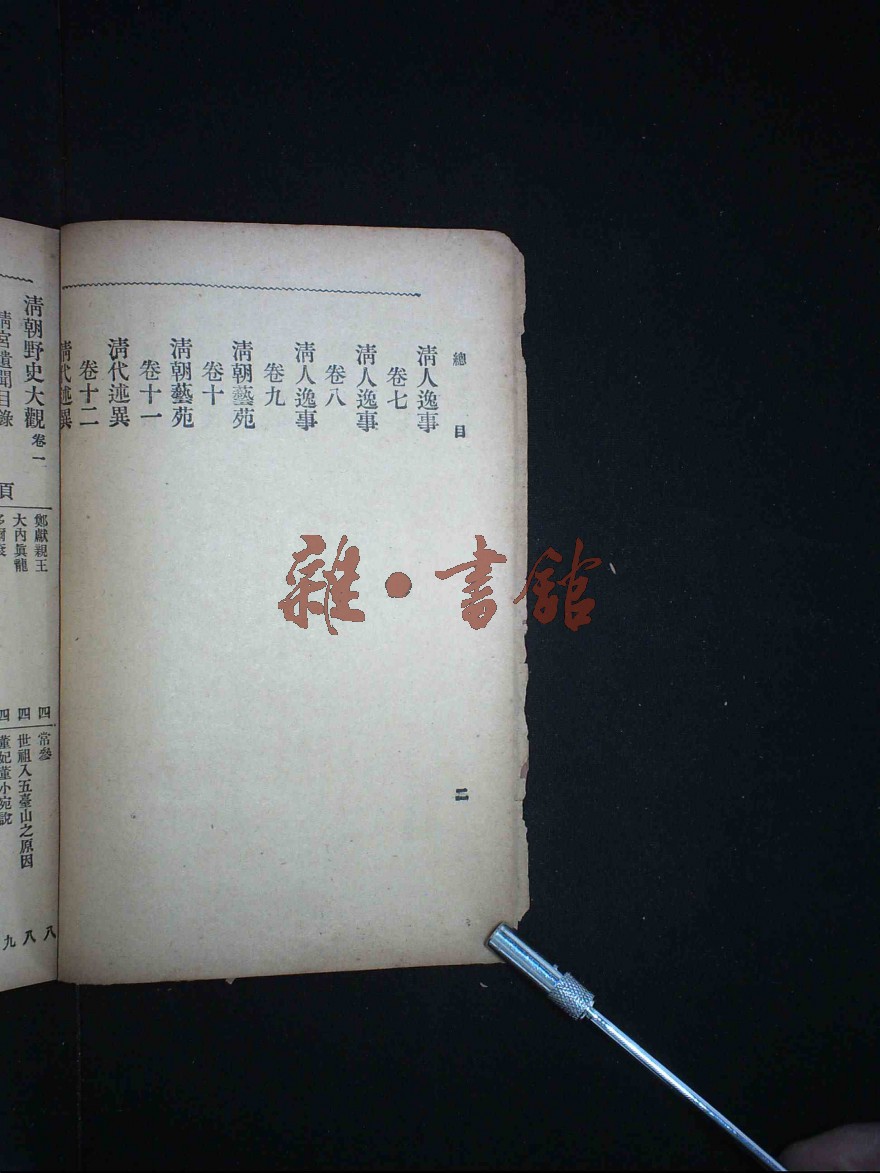 總目
清人逸事
卷七
清人逸事
卷八
清人逸事
卷九
清朝藝苑
卷十
清朝藝苑
卷十一
清代述異
卷十二
清代述異
二
雜·書館
清朝野史大觀 卷一
清宮遺聞目錄
頁
鄭獻親王 四
大內真龍 四
四
常參 八
世祖入五臺山之原因 八
董妃董小宛說 九